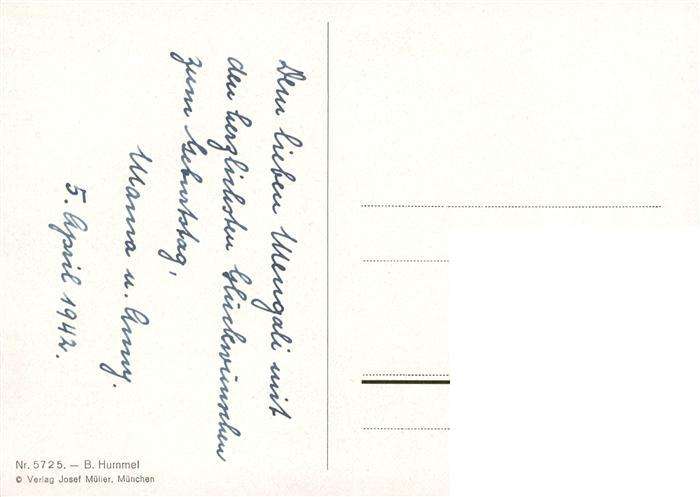 Dem lieben Mengali mit
den herzlichsten Glückwünschen
zum Geburtstag,
Mama u. Anny.
5. April 1942.
Nr. 5725. — B. Hummel
© Verlag Josef Müller, München